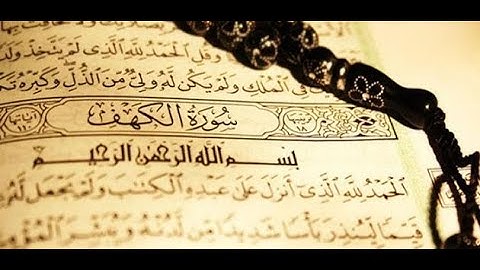 وَقُلِ ٱلْحَمْدُ لِلَّهِ ٱلَّذِى لَمْ يَتَّخِذْ
فِى ٱلْمُلْكِ وَلَمْ يَكُن لَّهُۥ وَلِىٌّ مِّنَ ٱلذُّلِّ وَكَبِّرْهُ
ترتيبها ١٨ سُورَةُ الكَهْفِ آياتها ١١٠
بِسْمِ ٱللَّهِ ٱلرَّحْمَٰنِ ٱلرَّحِيمِ
ٱلْحَمْدُ لِلَّهِ ٱلَّذِىٓ أَنزَلَ عَلَىٰ عَبْدِهِ ٱلْكِتَٰبَ وَلَمْ يَجْعَل لَّهُۥ
قَيِّمًا لِّيُنذِرَ بَأْسًا شَدِيدًا مِّن لَّدُنْهُ وَيُبَشِّرَ